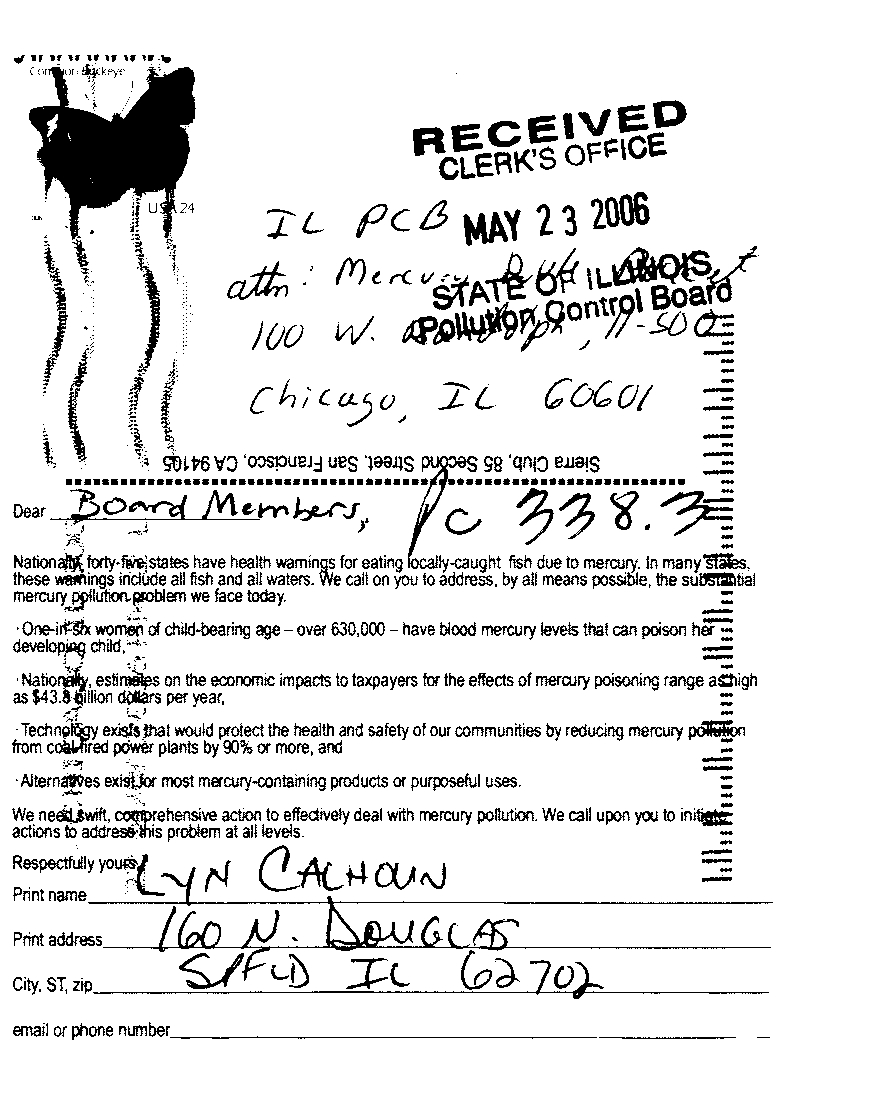 Common Buckeye
USA 24
RECEIVED
CLERK'S OFFICE
MAY 23 2006
STATE OF ILLINOIS
Pollution Control Board
IL PCB
attn: Mercury
100 W. Randolph, 11-500
Chicago, IL 60601
Sierra Club, 85 Second Street, San Francisco, CA 94105
Dear Board Members,
PC 338.3
Nationally, forty-five states have health warnings for eating locally-caught fish due to mercury. In many states,
these warnings include all fish and all waters. We call on you to address, by all means possible, the substantial
mercury pollution problem we face today.
· One-in-six women of child-bearing age – over 630,000 – have blood mercury levels that can poison her
developing child,
· Nationally, estimates on the economic impacts to taxpayers for the effects of mercury poisoning range as high
as $43.8 billion dollars per year,
· Technology exists that would protect the health and safety of our communities by reducing mercury pollution
from coal-fired power plants by 90% or more, and
· Alternatives exist for most mercury-containing products or purposeful uses.
We need swift, comprehensive action to effectively deal with mercury pollution. We call upon you to initiate
actions to address this problem at all levels.
Respectfully yours,
Print name LYN CALHOUN
Print address 160 N. DOUGLAS
City, ST, zip SPFLD IL 62702
email or phone number